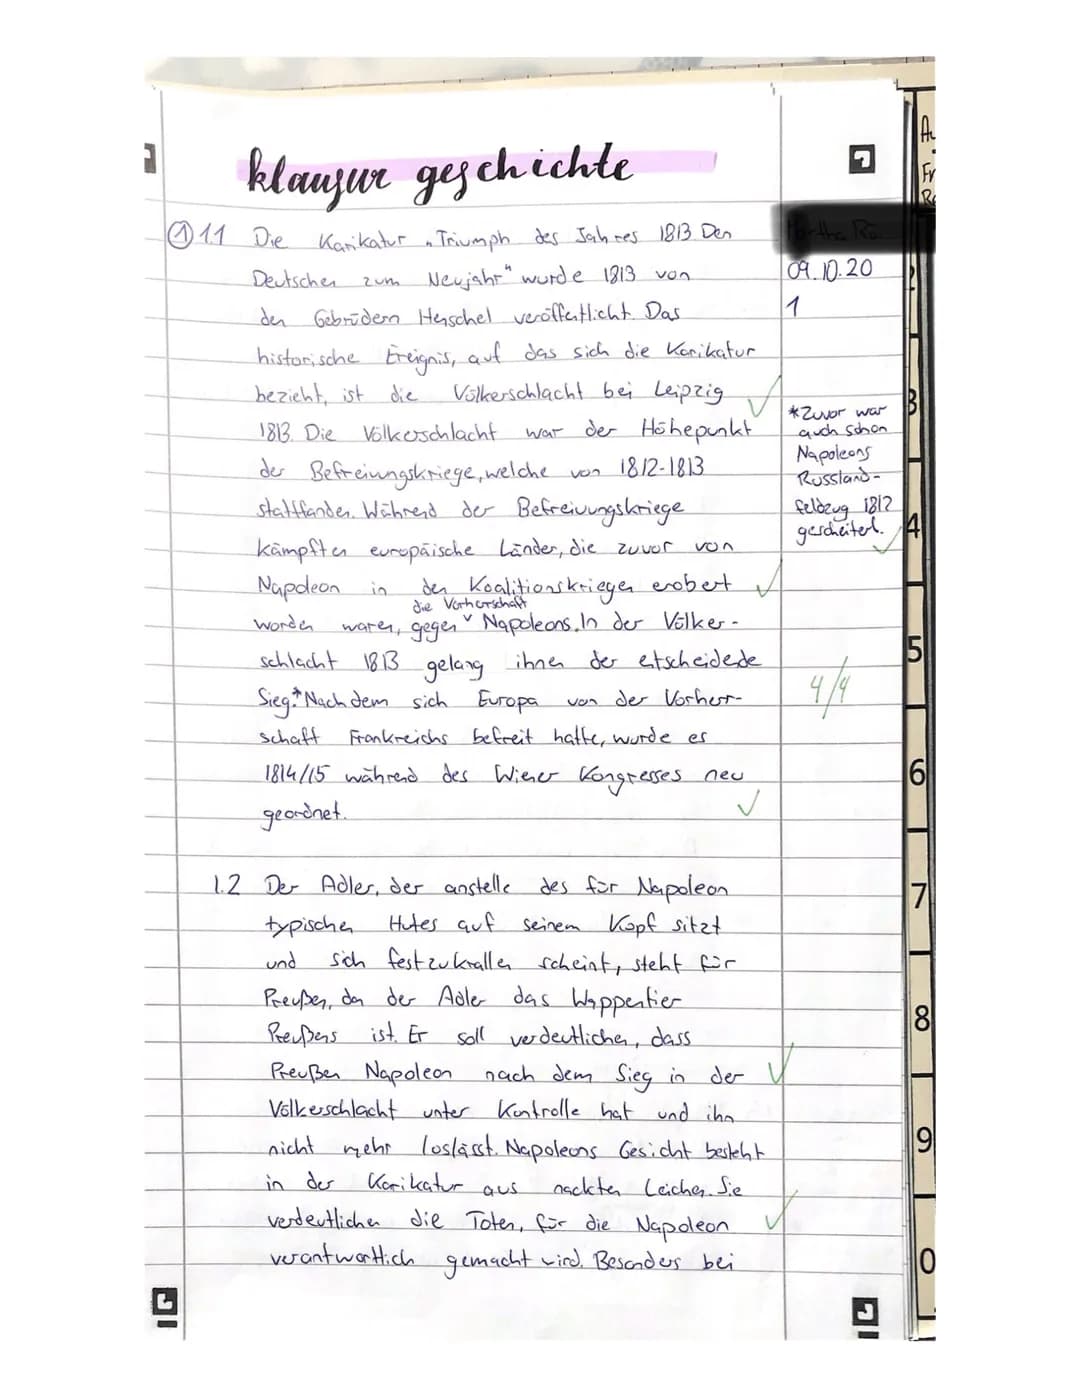 klausur geschichte
① 1.1 Die Karikatur „Triumph des Jahres 1813 Den
Deutschen zum Neujahr" wurde 1813 von
den Gebrüdern Henschel veröffentlicht. Das
historische Ereignis, auf das sich die Karikatur
bezieht, ist die Völkerschlacht bei Leipzig
1813. Die Völkerschlacht war der Höhepunkt
der Befreiungskriege, welche von 1812-1813
stattfanden. Während der Befreiuungskriege
kämpften europäische Länder, die zuvor von
Napoleon in den Koalitionskriegen erobert
die Vorherrschaft
worden waren, gegen ˅ Napoleons. In der Völker-
schlacht 1813 gelang ihnen der etscheidede
Sieg.* Nachdem sich Europa von der Vorherr-
schaft Frankreichs befreit hatte, wurde es
1814/15 während des Wiener Kongresses neu
geordnet.
09.10.20
1
*Zuvor war
auch schon
Napoleons
Russland-
feldzug 1812
gescheitert.
4/4
1.2 Der Adler, der anstelle des für Napoleon
typischen Hutes auf seinem Kopf sitzt
und sich festzukrallen scheint, steht für
Preußen, da der Adler das Wappentier
Preußens ist. Er soll verdeutlichen, dass
Preußen Napoleon nach dem Sieg in der
Völkerschlacht unter Kontrolle hat und ihn
nicht mehr loslässt. Napoleons Gesicht besteht
in der Karikatur aus nackten Leichen. Sie
verdeutlichen die Toten, für die Napoleon
verantwortlich gemacht wird. Besonders bei
Au
Fr
Re
2
3
4
5
6
7
8
9
0